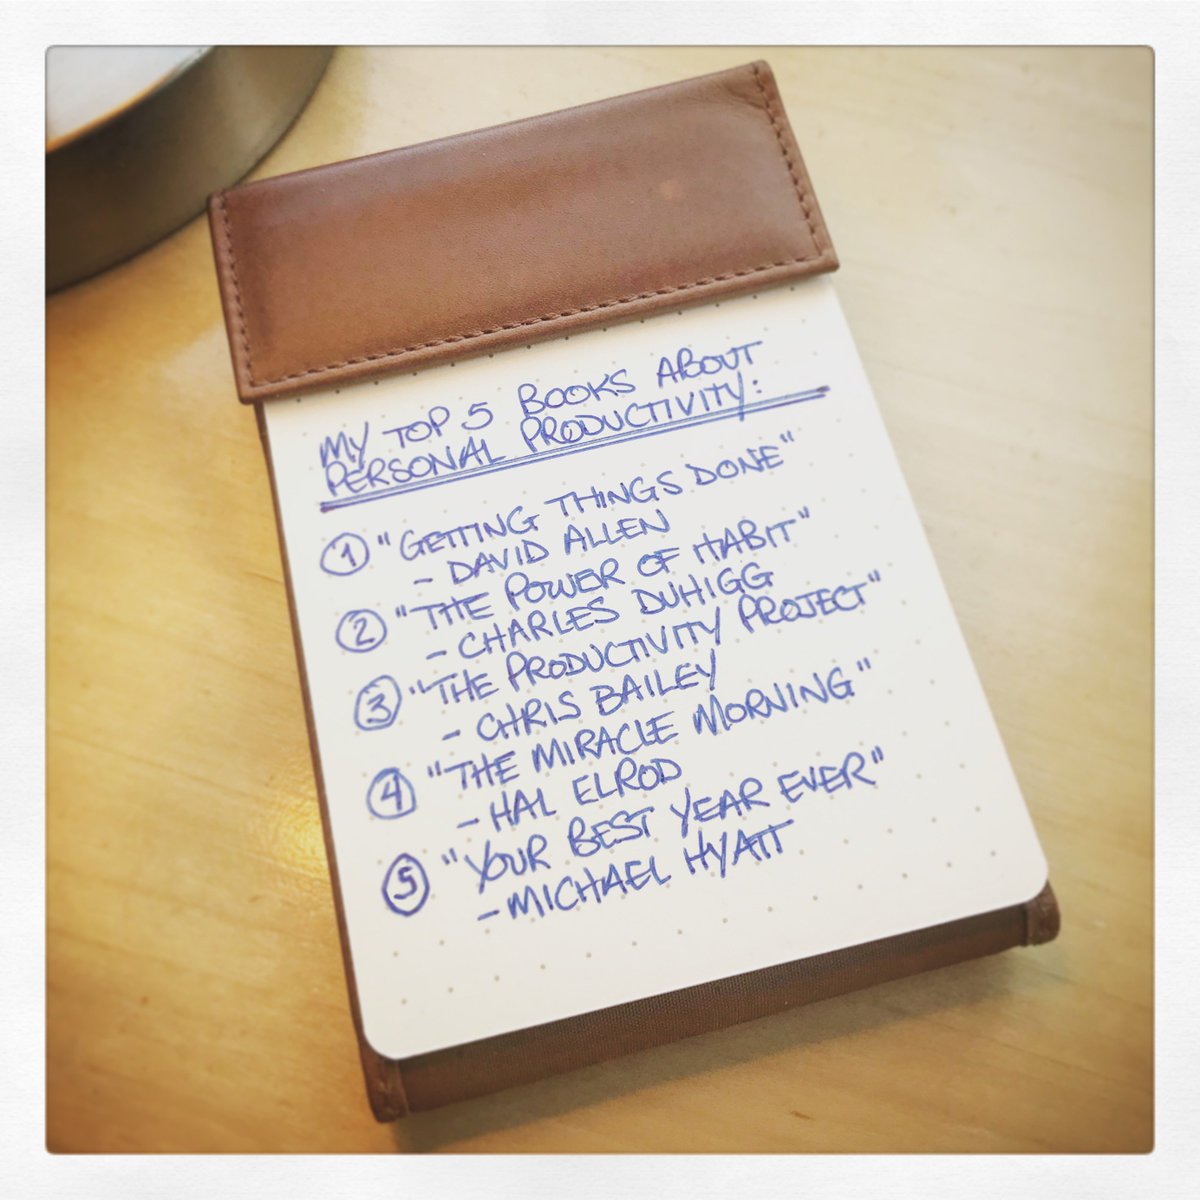 MY TOP 5 BOOKS ABOUT
PERSONAL PRODUCTIVITY:
1 "GETTING THINGS DONE"
- DAVID ALLEN
2 "THE POWER OF HABIT"
- CHARLES DUHIGG
3 "THE PRODUCTIVITY PROJECT"
- CHRIS BAILEY
4 "THE MIRACLE MORNING"
- HAL ELROD
5 "YOUR BEST YEAR EVER"
- MICHAEL HYATT